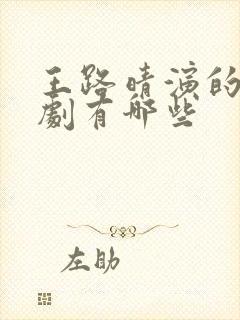 王路晴演的
劇有哪些
左助